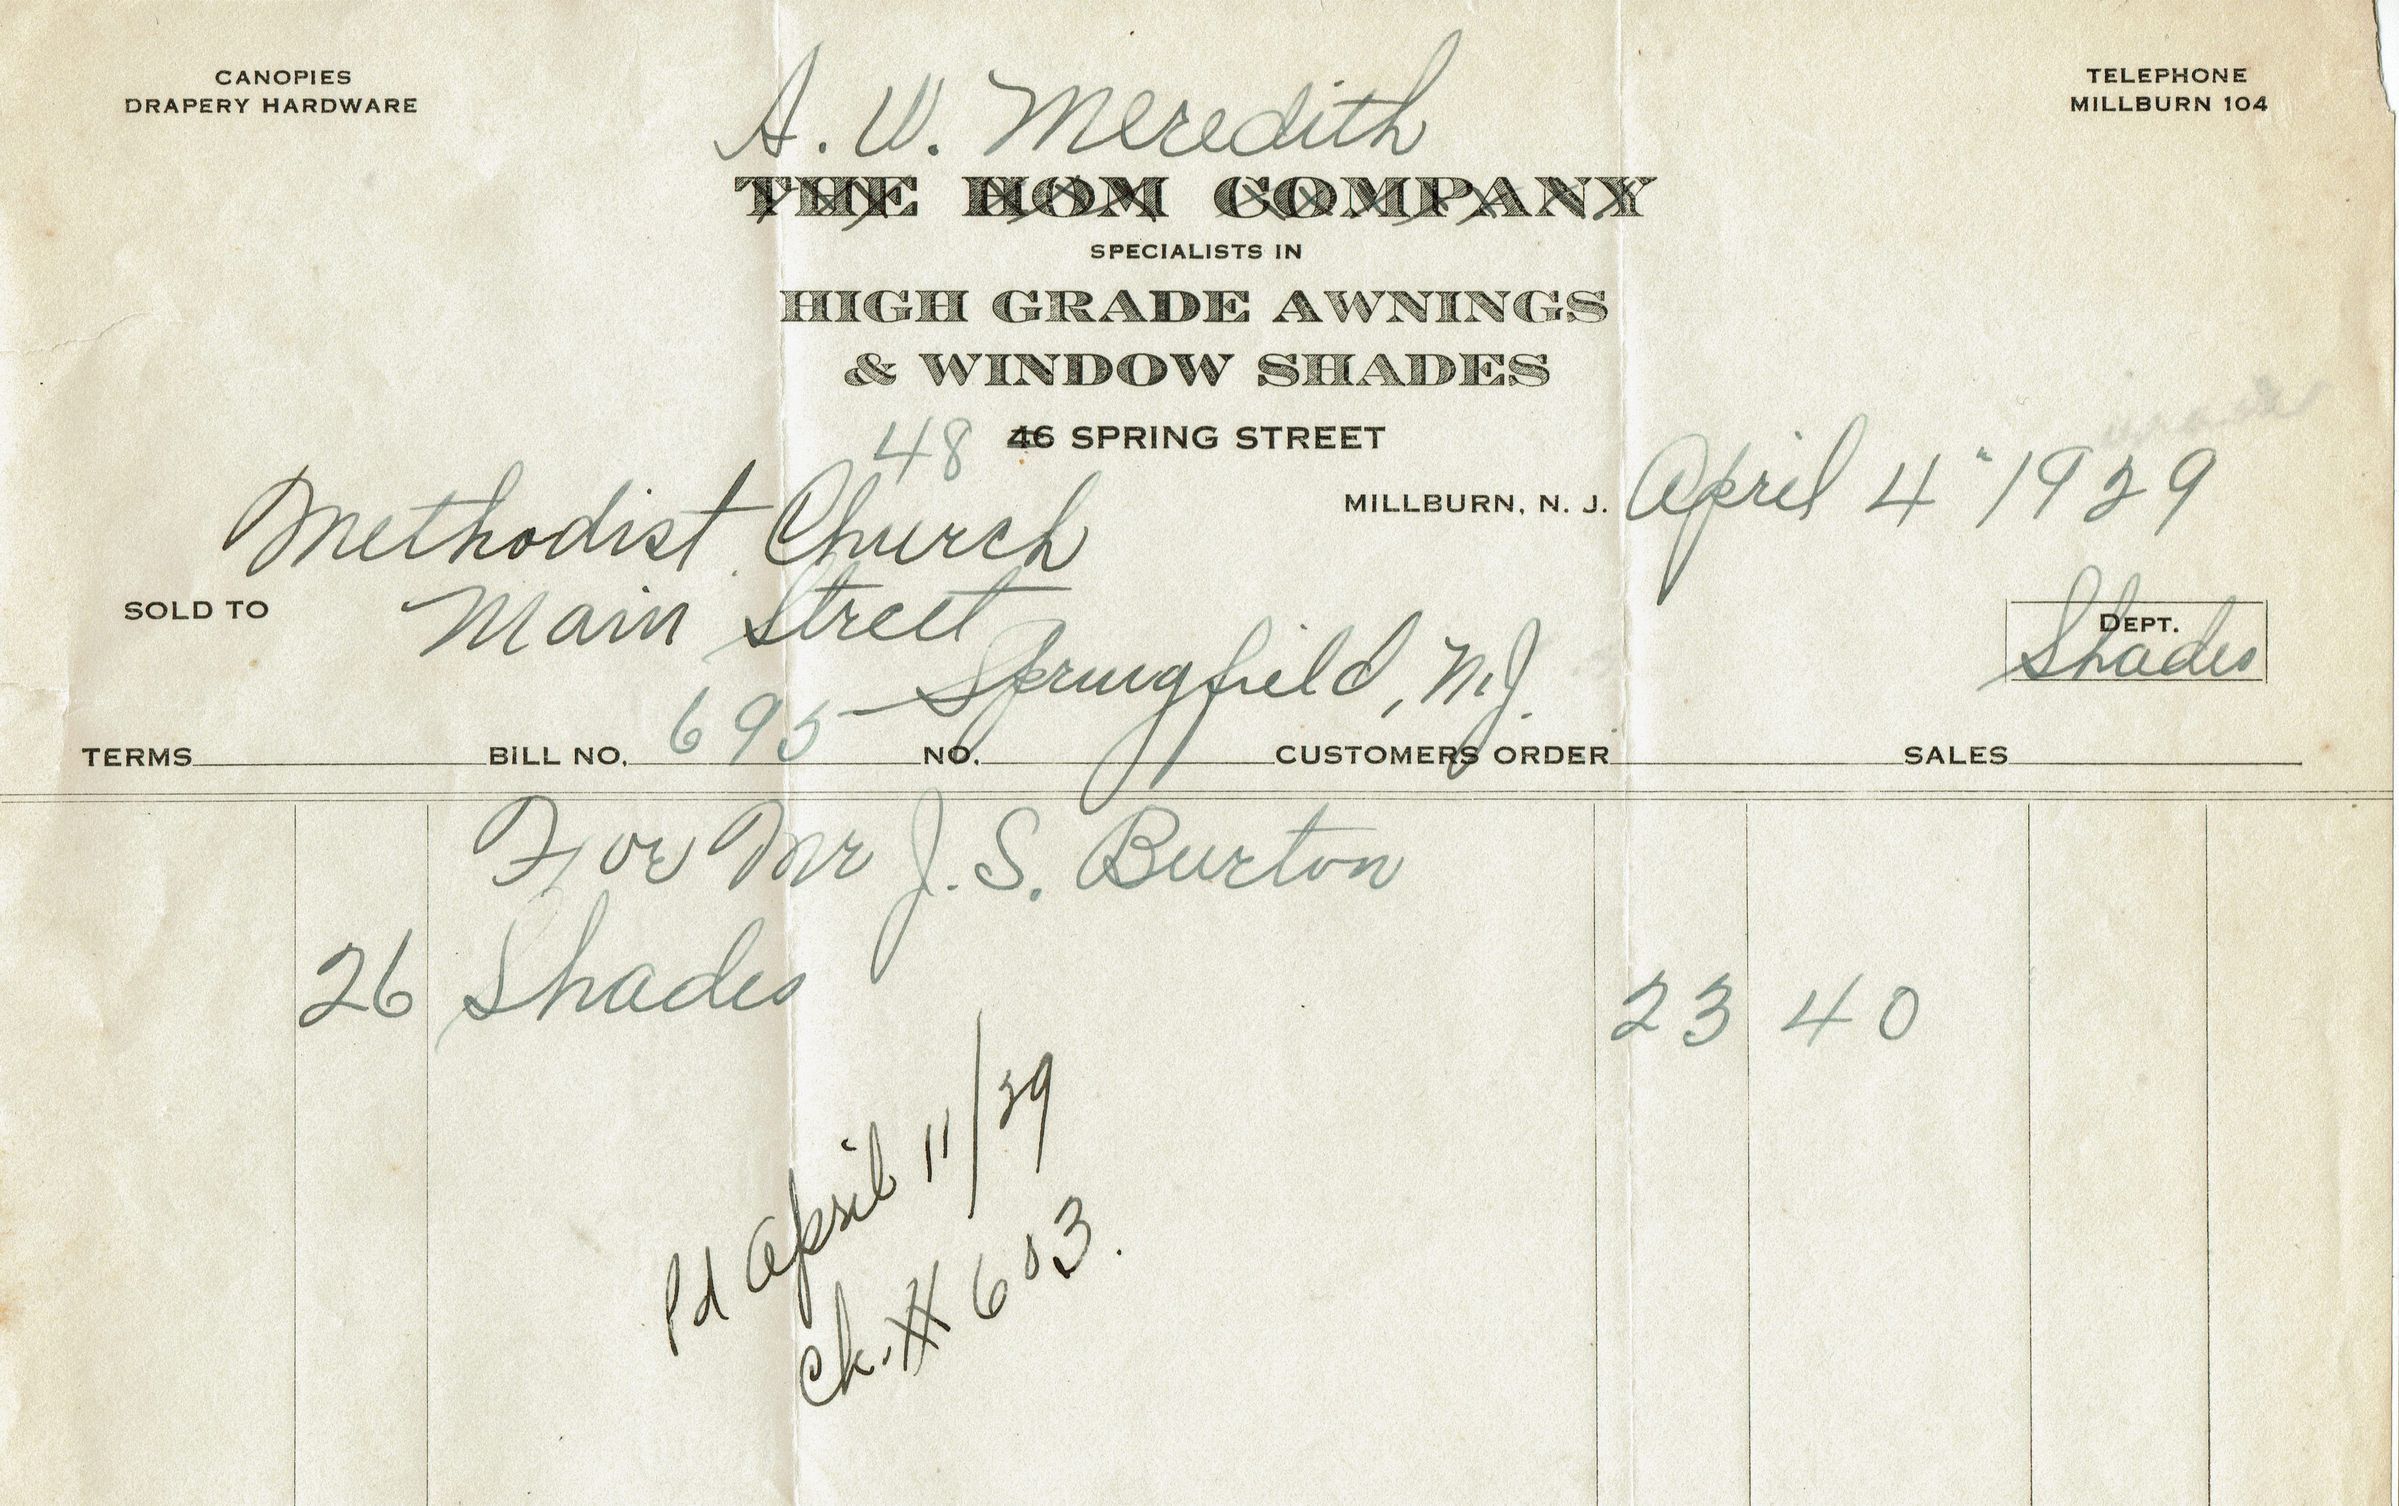 CANOPIES
DRAPERY HARDWARE
TELEPHONE
MILLBURN 104
A. W. Meredith
THE HOM COMPANY
SPECIALISTS IN
HIGH GRADE AWNINGS
& WINDOW SHADES
48 46 SPRING STREET
MILLBURN, N. J. April 4" 1929
Methodist Church
SOLD TO Main Street
Springfield, N.J.
DEPT.
Shades
TERMS BILL NO. 695 NO. CUSTOMERS ORDER SALES
For Mr J. S. Burton
26 Shades 23 40
Pd April 11/29
Ck. # 603.